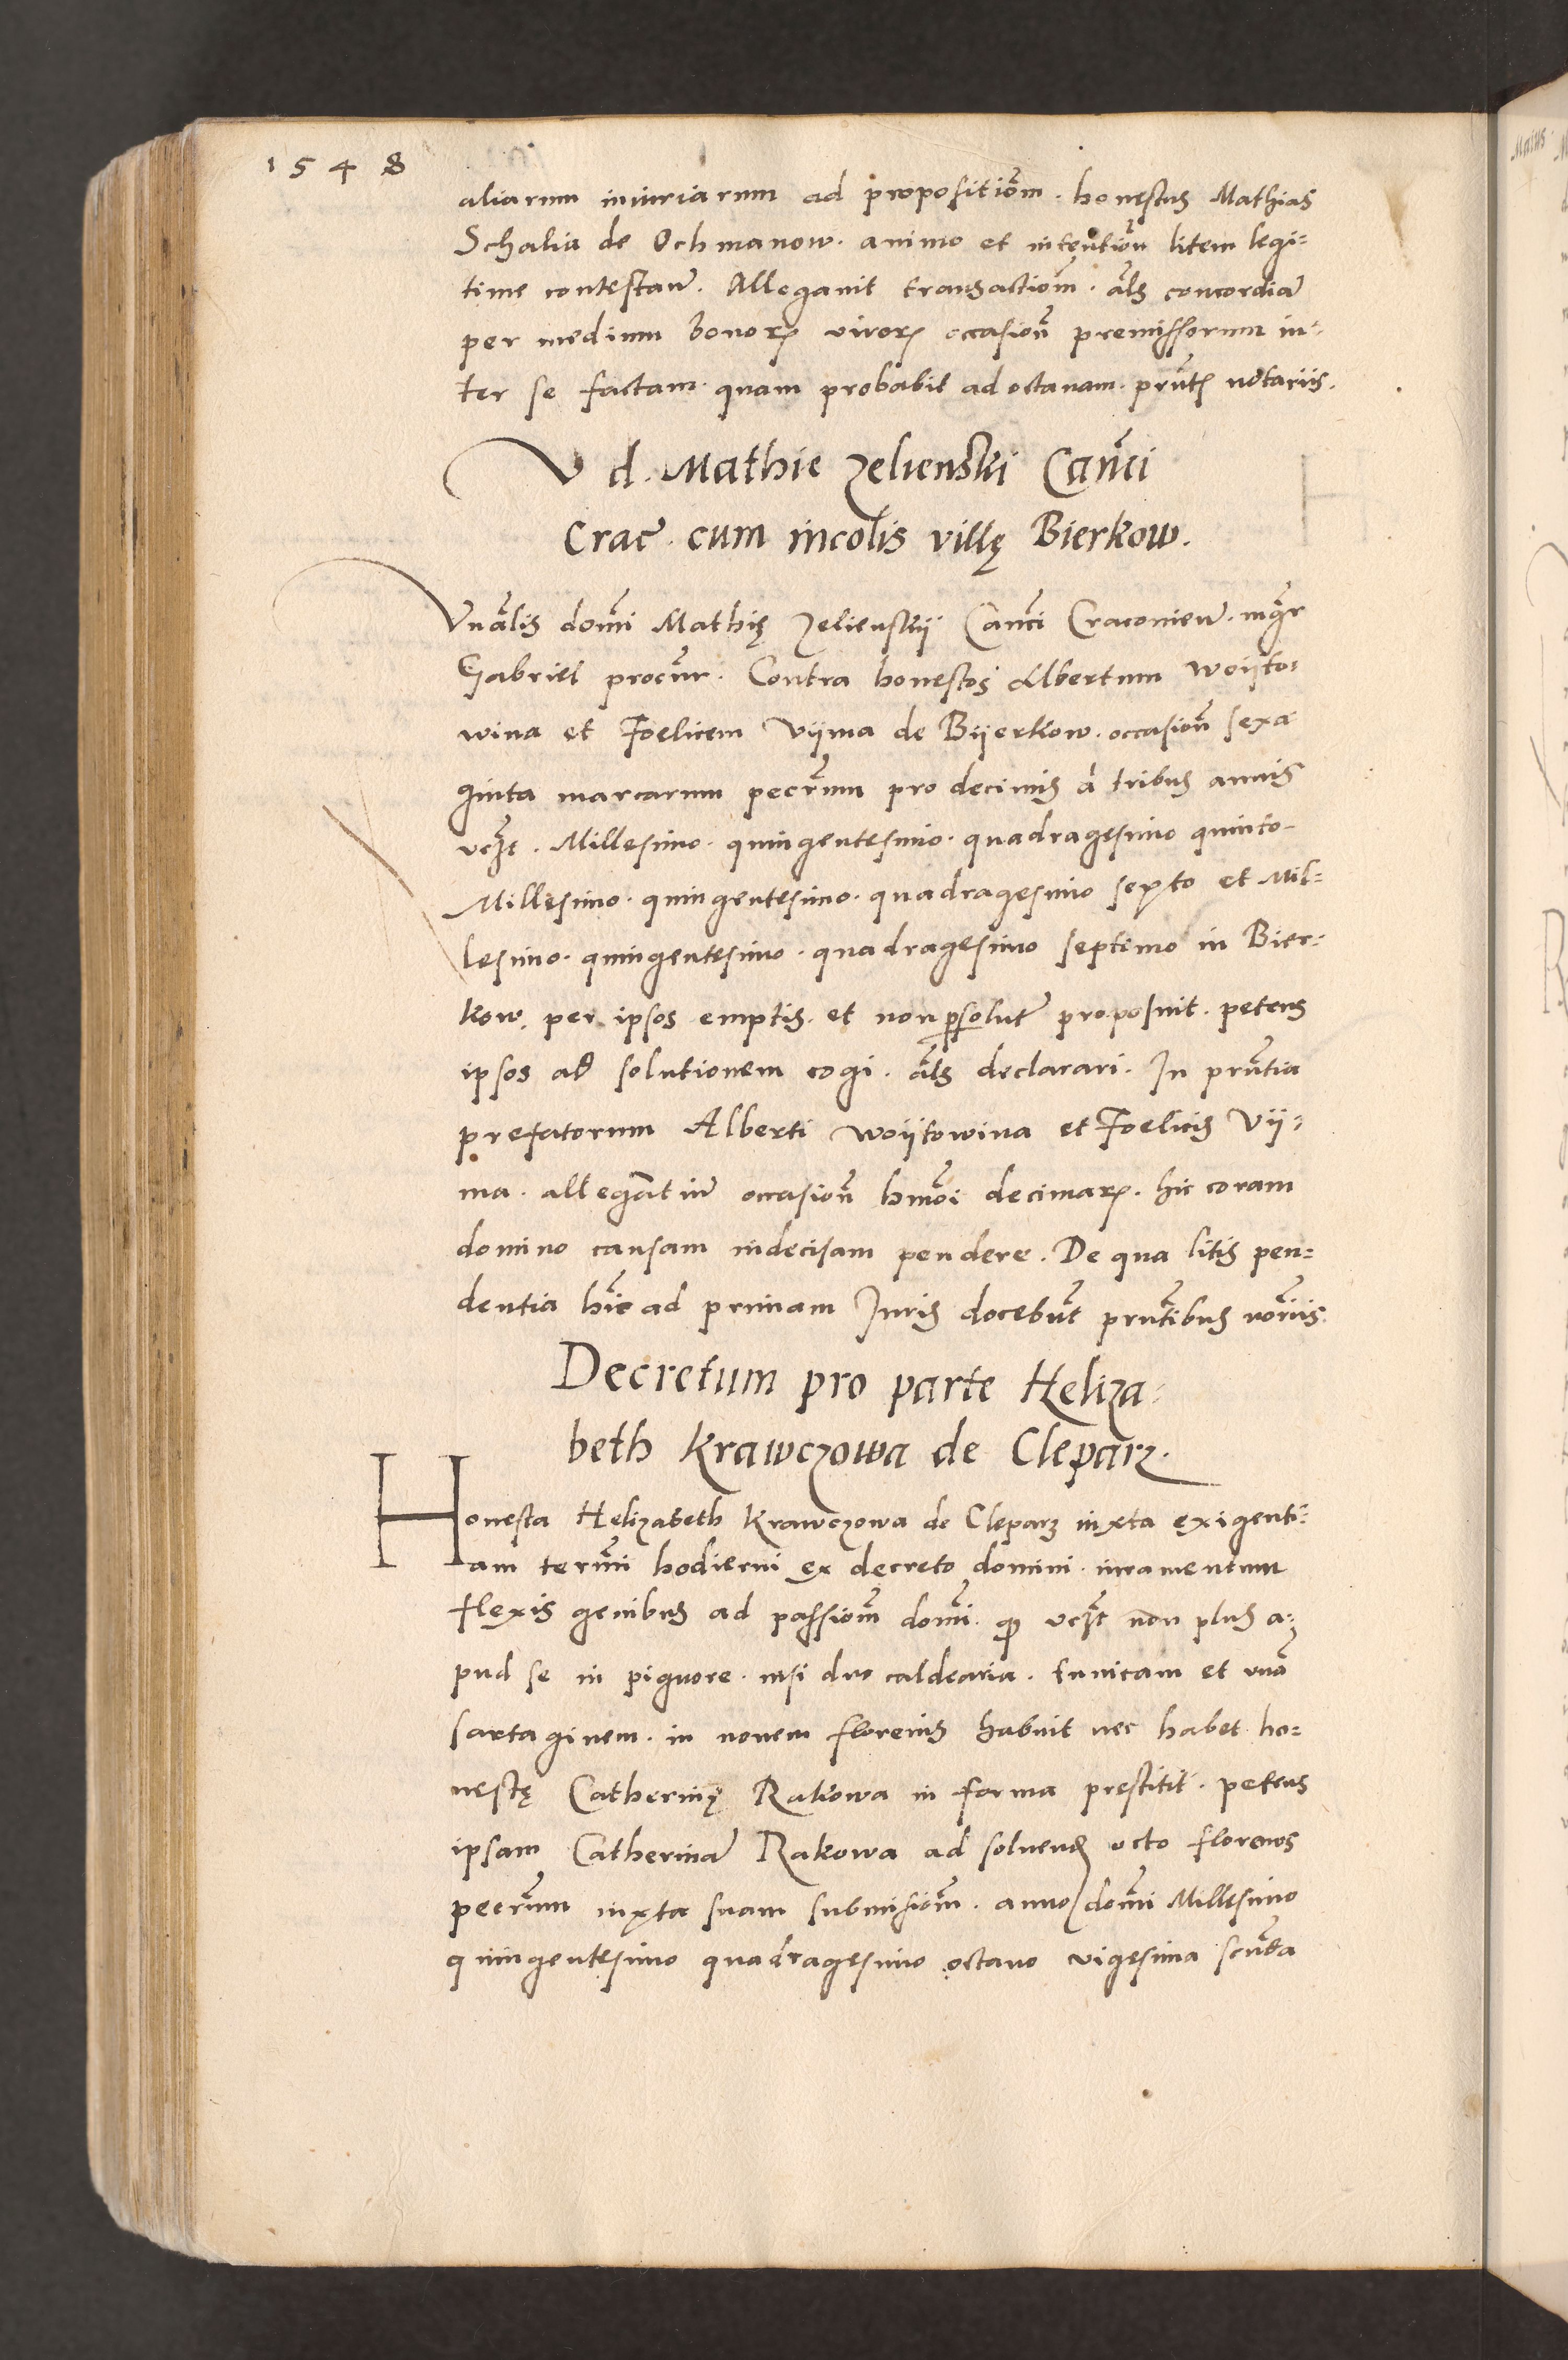 1548
aliarum iniuriarum ad propositiōm. honestus Mathias
Schalia de Ochmanow. animo et intentiōn litem legi=
time contestan̄. Allegauit transactiōm. āls concordiā
per medium bonoꝝ viroꝝ occasiōn premissorum in=
ter se factam. quam probabit ad octauam. pr̄ntꝫ notariis.
V d. Mathie Zelienski Can̄ci
Crac̄. cum incolis villę Bierkow.
Vn̄alis dom̄i Mathię Zelienskij Can̄ci Cracovien̄. mḡr
Gabriel procūr. Contra honestos Albertum Woijto=
wina et Foelicem Vijma de Bijerkow. occasiōn sexa
ginta marcarum pecr̄um pro decimis a tribus annis
vcꝫt. Millesimo. quingentesimo. quadragesimo quinto
Millesimo. quingentesimo. quadragesimo sexto et Mil=
lesimo. quingentesimo. quadragesimo septimo in Bier=
kow. per ipsos emptis. et non ꝑsolut̄ proposuit. petens
ipsos ad solutionem cogi. āls declarari. In pr̄ntia
prefatorum Alberti Woijtowina et Foelicis Vij=
ma. allegāntiū occasiōn hm̄oi decimaꝝ. hic coram
domino causam indecisam pendere. De qua litis pen=
dentia h̄ic ad primam Iuris docebūt pr̄ntibus nōriis.
Decretum pro parte Heliza=
beth Krawczowa de Cleparz.
Honesta Helizabeth Krawczowa de Cleparz iuxta exigenti=
am term̄i hodierni ex decreto domini. iuramentum
flexis genibus ad passiōm dom̄i. ꝙ vcꝫt non plus a=
pud se in pignore. nisi duo caldearia. tunicam et vnā
sartaginem. in nouem florenis habuit nec habet. ho=
nestę Catherinę Rakowa in forma prestitit. petens
ipsam Catherinā Rakowa ad soluenḍ octo florenos
pecr̄um iuxta suam submisiōm. anno dom̄i Millesimo
quingentesimo quadragesimo octauo vigesima scūda